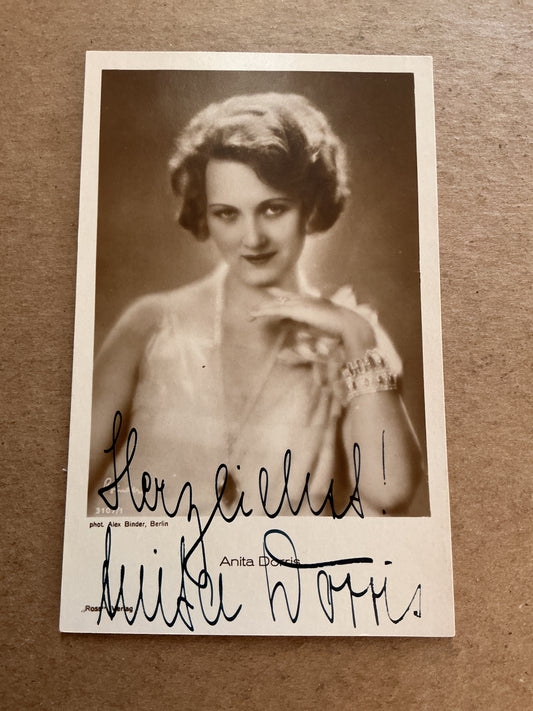 Herzlichst!
3107/1
phot. Alex Binder, Berlin
Anita Dorris
Anita Dorris
"Ross" Verlag